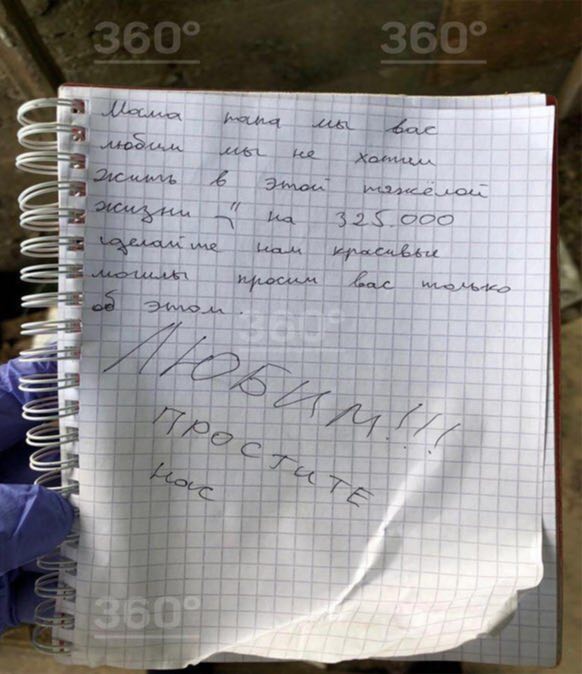 360° 360°
Мама папа мы вас
любим мы не хотим
жить в этой тяжёлой
жизни на 325.000
сделайте нам красивые
могилы просим вас только
об этом.
360°
ЛЮБИМ!!!
ПРОСТИТЕ
нас
360° 360°